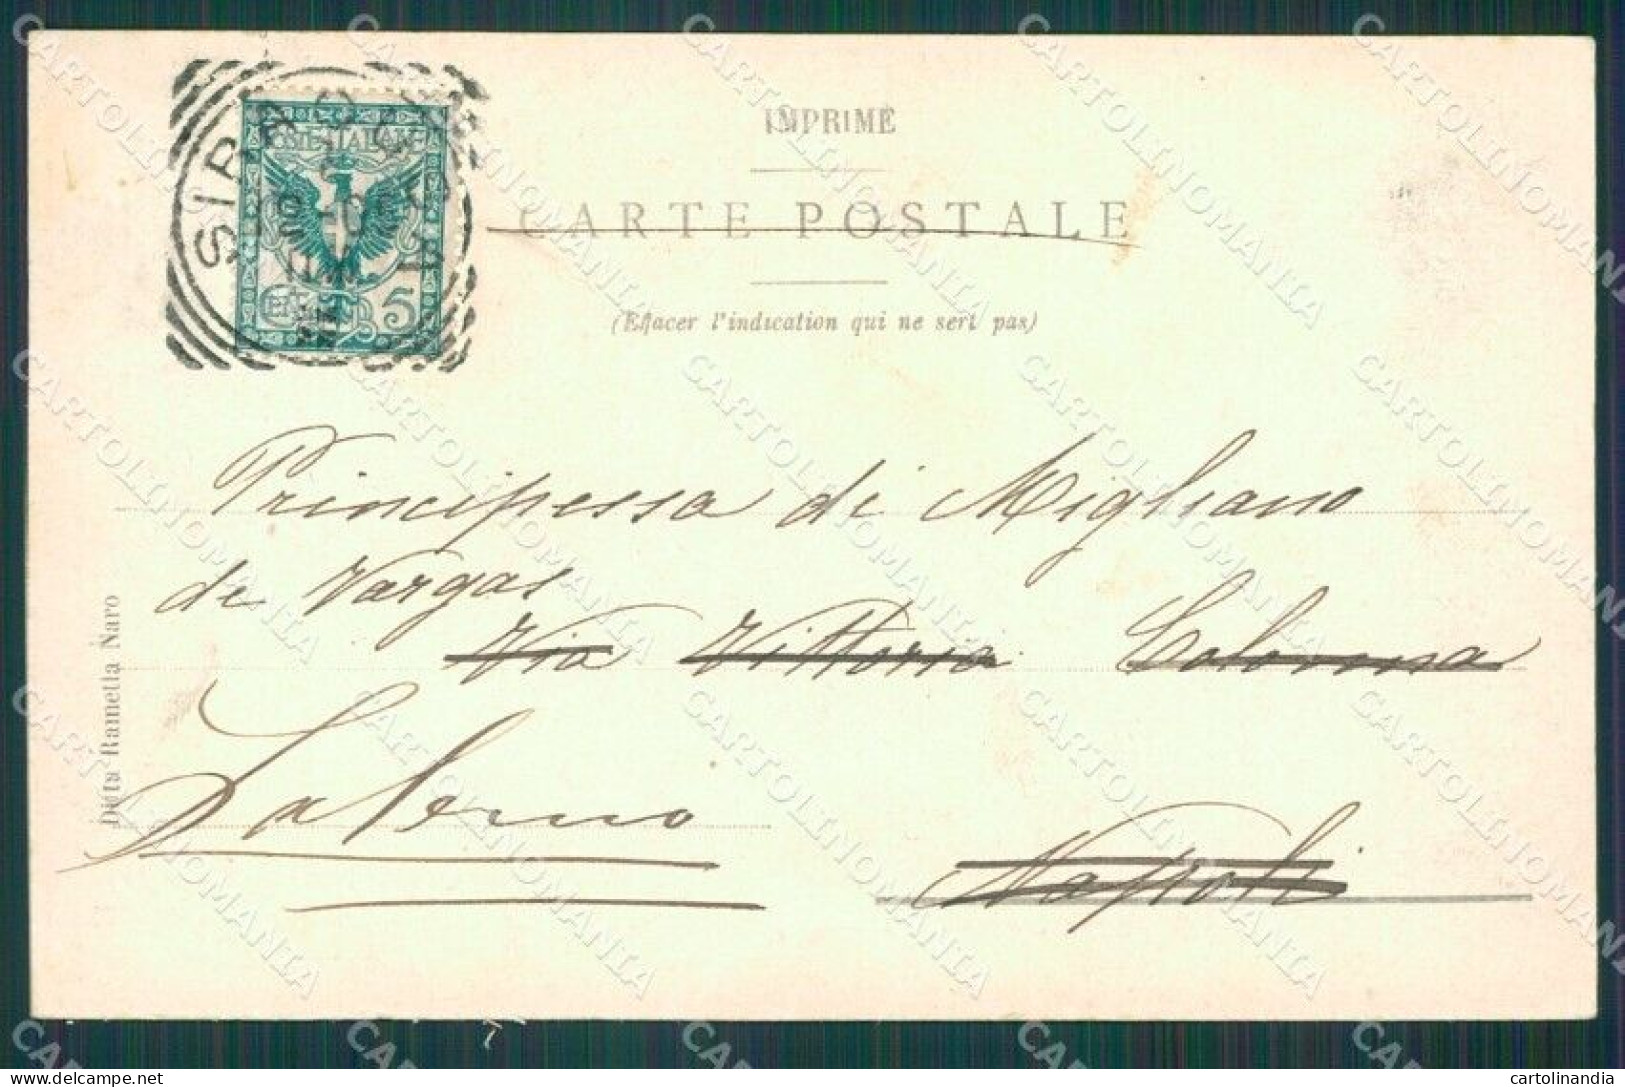 IMPRIMÉ
CARTE POSTALE
(Effacer l'indication qui ne sert pas)
SIRACUSA
POSTE ITALIANE
CENT. 5
Principessa di Migliano
de Vargas
Via Vittoria Colonna
Salerno
Napoli
Ditta Rametta Naro
CARTOLINOMANIA
cartolinandia